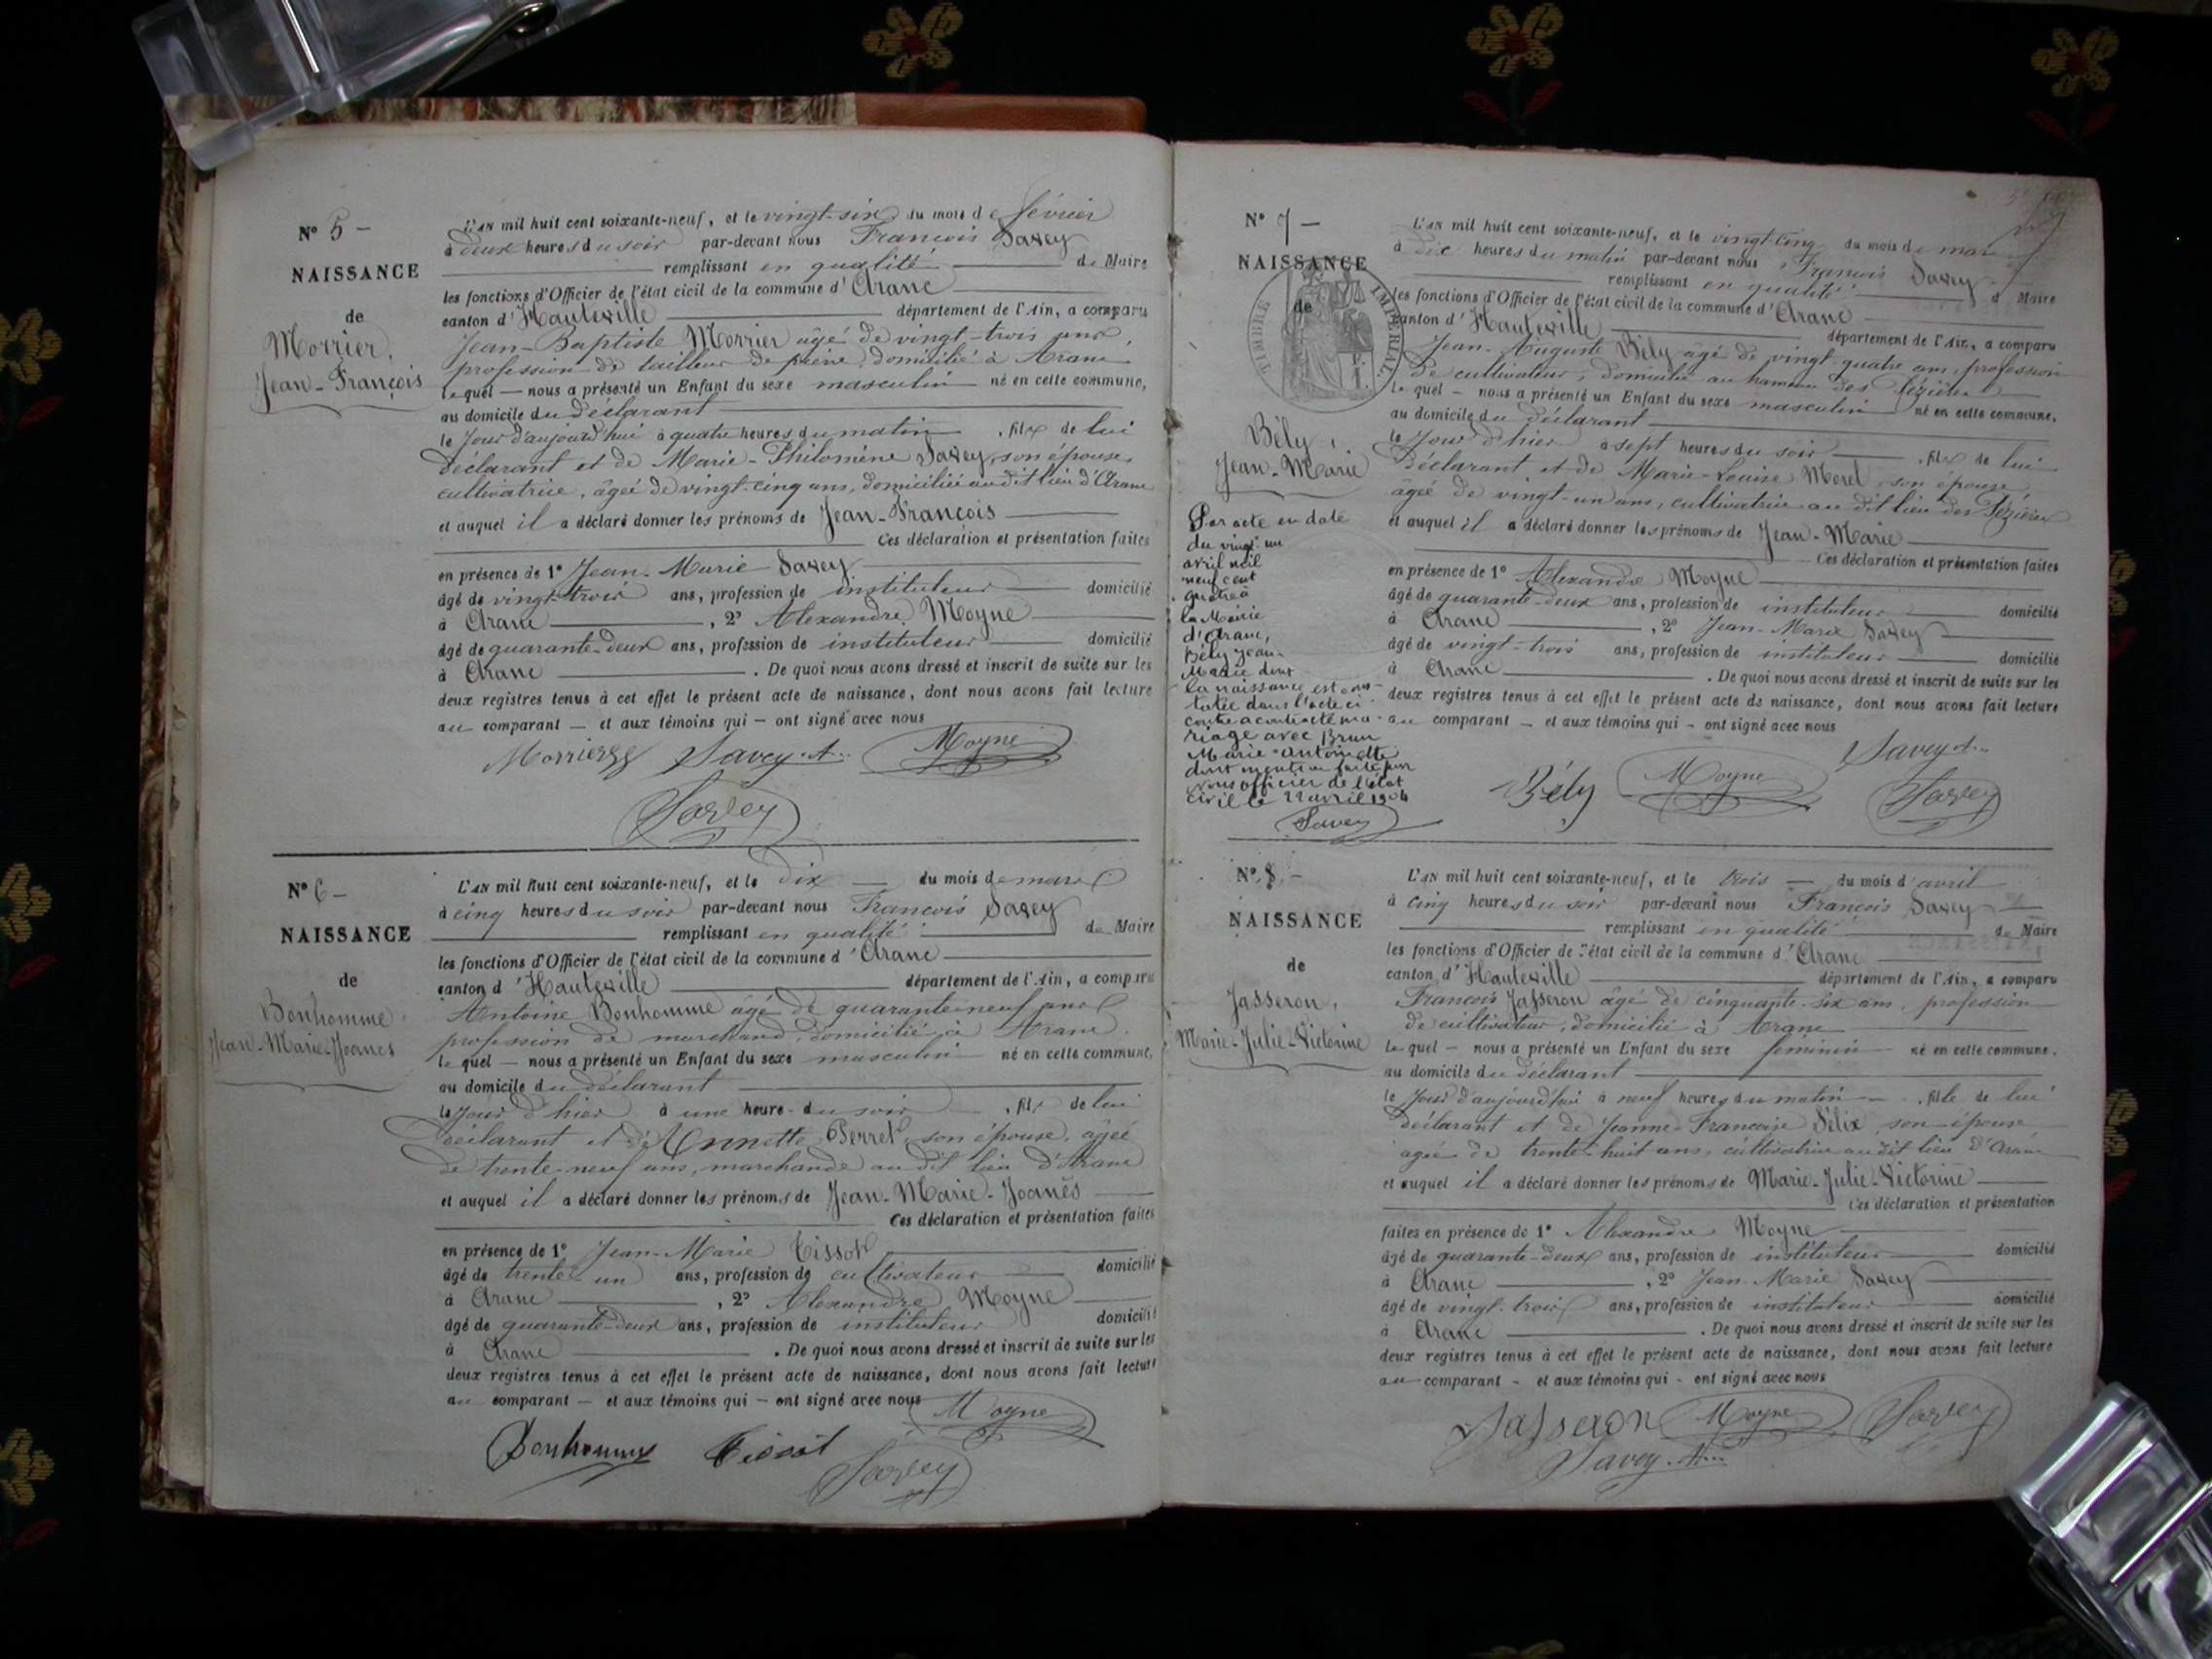 N° 5 -
NAISSANCE
de
Morrier,
Jean-François
L'AN mil huit cent soixante-neuf, et le vingt-six du mois de février
à deux heures du soir par-devant nous François Savey
remplissant en qualité de Maire
les fonctions d'Officier de l'état civil de la commune d'Aranc
canton d'Hauteville département de l'Ain, a comparu
Jean-Baptiste Morrier âgé de vingt-trois ans,
profession de tailleur de pierre, domicilié à Aranc
lequel — nous a présenté un Enfant du sexe masculin né en cette commune,
au domicile du déclarant
le jour d'aujourd'hui à quatre heures du matin, fils de lui
déclarant et de Marie-Philomène Savey, son épouse,
cultivatrice, âgée de vingt-cinq ans, domiciliée au dit lieu d'Aranc
et auquel il a déclaré donner les prénoms de Jean-François
Ces déclaration et présentation faites
en présence de 1° Jean-Marie Savey
âgé de vingt-trois ans, profession de instituteur domicilié
à Aranc, 2° Alexandre Moyne
âgé de quarante-deux ans, profession de instituteur domicilié
à Aranc. De quoi nous avons dressé et inscrit de suite sur les
deux registres tenus à cet effet le présent acte de naissance, dont nous avons fait lecture
au comparant — et aux témoins qui — ont signé avec nous
Morrier Savey A. Moyne
Savey
N° 6 -
NAISSANCE
de
Bonhomme
Jean-Marie-Joanès
L'AN mil huit cent soixante-neuf, et le dix — du mois de mars
à cinq heures du soir par-devant nous François Savey
remplissant en qualité de Maire
les fonctions d'Officier de l'état civil de la commune d'Aranc
canton d'Hauteville département de l'Ain, a comparu
Antoine Bonhomme âgé de quarante-neuf ans
profession de marchand, domicilié à Aranc.
lequel — nous a présenté un Enfant du sexe masculin né en cette commune,
au domicile du déclarant
le jour d'hier à une heure du soir, fils de lui
déclarant et d'Annette Perret, son épouse, âgée
de trente-neuf ans, marchande au dit lieu d'Aranc
et auquel il a déclaré donner les prénoms de Jean-Marie-Joanès
Ces déclaration et présentation faites
en présence de 1° Jean-Marie Tissot
âgé de trente-un ans, profession de cultivateur domicilié
à Aranc, 2° Alexandre Moyne
âgé de quarante-deux ans, profession de instituteur domicilié
à Aranc. De quoi nous avons dressé et inscrit de suite sur les
deux registres tenus à cet effet le présent acte de naissance, dont nous avons fait lecture
au comparant — et aux témoins qui — ont signé avec nous
Moyne
Bonhomme Tissot
Savey
N° 7 -
NAISSANCE
de
TIMBRE IMPÉRIAL
Bély,
Jean-Marie
Par acte en date
du vingt un
avril mil
neuf cent
quatre à
la Mairie
d'Aranc,
Bély Jean-
Marie dont
la naissance est cons-
tatée dans l'acte ci-
contre a contracté ma-
riage avec Brun
Marie-Antoinette
dont mention faite par
nous officier de l'état
civil le 22 avril 1904
Savey
L'AN mil huit cent soixante-neuf, et le vingt-cinq du mois de mars
à dix heures du matin par-devant nous François Savey
remplissant en qualité de Maire
les fonctions d'Officier de l'état civil de la commune d'Aranc
canton d'Hauteville département de l'Ain, a comparu
Jean-Auguste Bély âgé de vingt-quatre ans, profession
de cultivateur, domicilié au hameau des
lequel — nous a présenté un Enfant du sexe masculin né en cette commune,
au domicile du déclarant
le jour d'hier à sept heures du soir, fils de lui
déclarant et de Marie-Louise Morel, son épouse
âgée de vingt-un ans, cultivatrice au dit lieu des
et auquel il a déclaré donner les prénoms de Jean-Marie
Ces déclaration et présentation faites
en présence de 1° Alexandre Moyne
âgé de quarante-deux ans, profession de instituteur domicilié
à Aranc, 2° Jean-Marie Savey
âgé de vingt-trois ans, profession de instituteur domicilié
à Aranc. De quoi nous avons dressé et inscrit de suite sur les
deux registres tenus à cet effet le présent acte de naissance, dont nous avons fait lecture
au comparant — et aux témoins qui — ont signé avec nous
Savey A.
Bély Moyne Savey
N° 8 -
NAISSANCE
de
Jasseron,
Marie-Julie-Victorine
L'AN mil huit cent soixante-neuf, et le trois — du mois d'avril
à cinq heures du soir par-devant nous François Savey
remplissant en qualité de Maire
les fonctions d'Officier de l'état civil de la commune d'Aranc
canton d'Hauteville département de l'Ain, a comparu
François Jasseron âgé de cinquante-six ans, profession
de cultivateur, domicilié à Aranc
lequel — nous a présenté un Enfant du sexe féminin né en cette commune,
au domicile du déclarant
le jour d'aujourd'hui à neuf heures du matin, fille de lui
déclarant et de Jeanne-Françoise Félix, son épouse
âgée de trente-huit ans, cultivatrice au dit lieu d'Aranc
et auquel il a déclaré donner les prénoms de Marie-Julie-Victorine
Ces déclaration et présentation
faites en présence de 1° Alexandre Moyne
âgé de quarante-deux ans, profession de instituteur domicilié
à Aranc, 2° Jean-Marie Savey
âgé de vingt-trois ans, profession de instituteur domicilié
à Aranc. De quoi nous avons dressé et inscrit de suite sur les
deux registres tenus à cet effet le présent acte de naissance, dont nous avons fait lecture
au comparant - et aux témoins qui - ont signé avec nous
Jasseron Moyne Savey
Savey A.